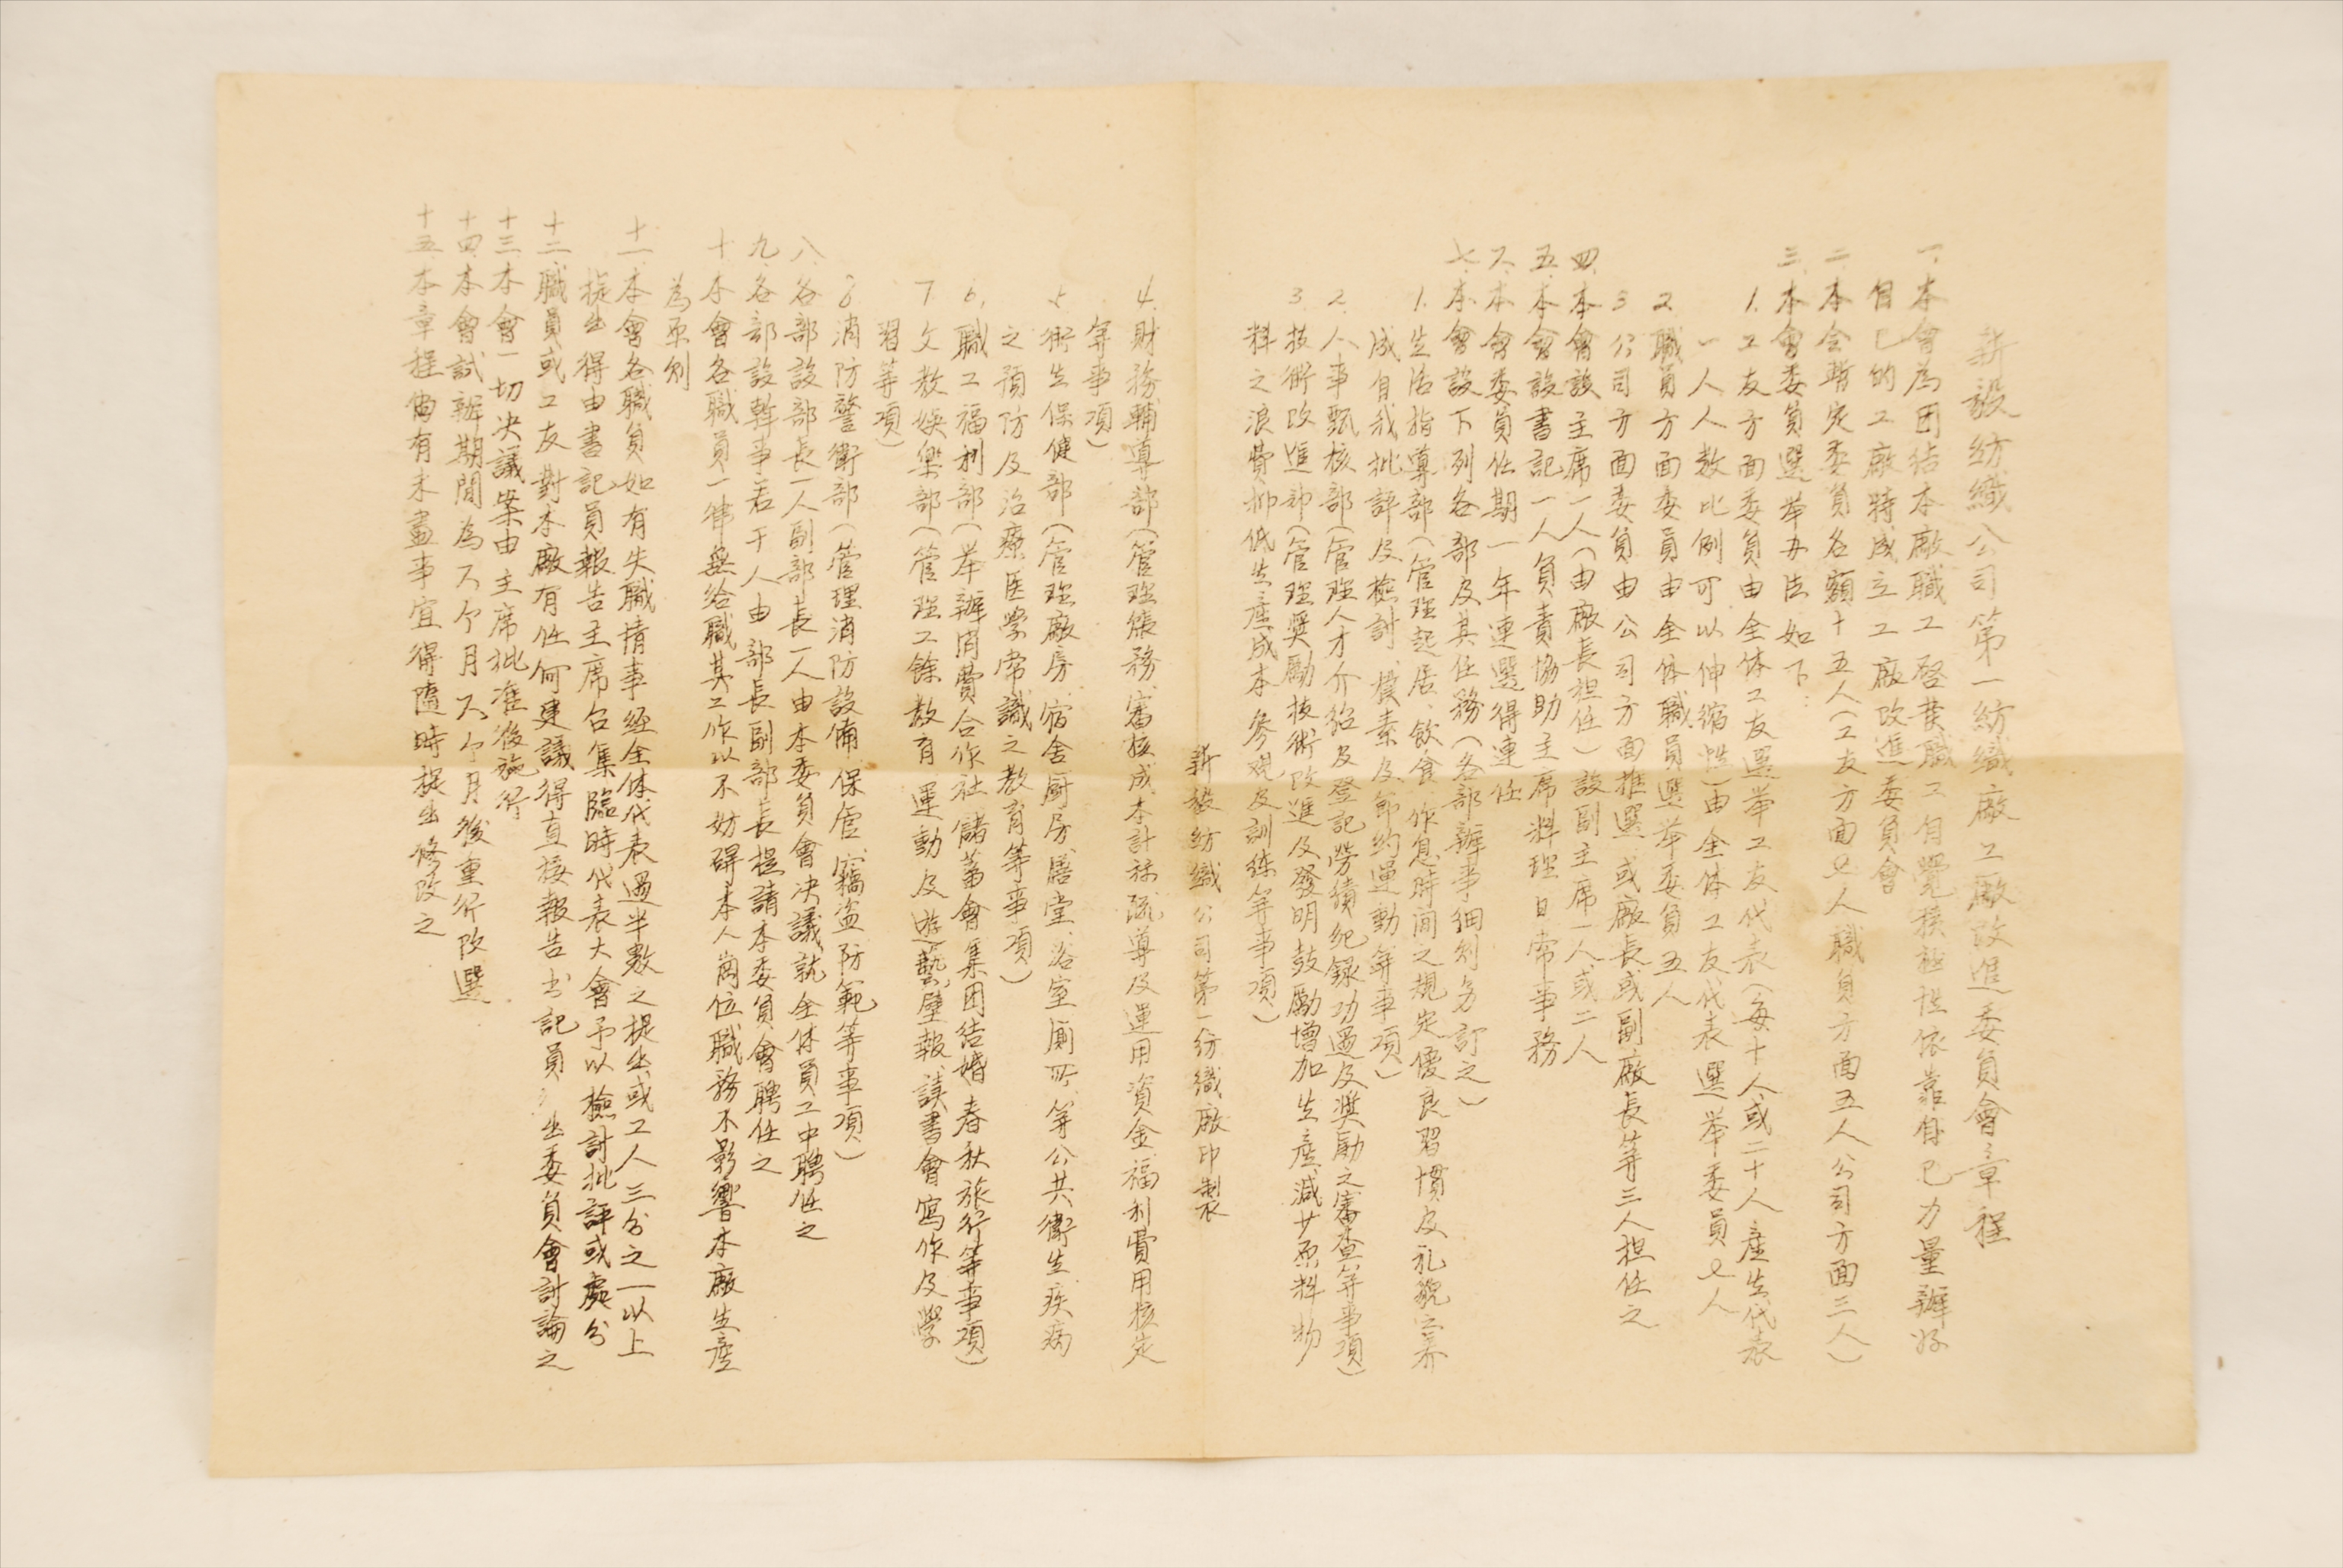 新毅紡織公司第一紡織廠工廠改進委員會章程
一、本會為团结本廠職工啓發職工自覺積極性依靠自己力量辦好
自己的工廠特成立工廠改進委員會
二、本会暫定委員名額十五人(工友方面七人職員方面五人公司方面三人)
三、本會委員選举办法如下:
1.工友方面委員由全体工友選举工友代表(每十人或二十人產生代表
一人人数比例可以伸縮性)由全体工友代表選举委員七人
2.職員方面委員由全体職員選举委員五人
3.公司方面委員由公司方面推選或廠長或副廠長等三人担任之
四.本會設主席一人(由廠長担任)設副主席一人或二人
五.本會設書記一人負責協助主席料理日常事務
六.本會委員任期一年連選得連任
七.本會設下列各部及其任務(各部辦事細则另訂之)
1.生活指導部(管理起居、飲食、作息時间之規定優良習慣及礼貌之养
成自我批評及檢討、樸素及節約運動等事項)
2.人事甄核部(管理人才介紹及登記勞績紀錄功過及奬勵之審查等事項)
3.技術改進部(管理奬勵技術改進及發明鼓勵增加生產減少原料物
料之浪費抑低生產成本參观及訓練等事項)
新毅紡織公司第一紡織廠印製
4.財務輔導部(管理賬務、審核成本計核疏導及運用資金福利費用核定
等事項)
5.衛生保健部(管理廠房宿舍厨房、膳堂、浴室厠所、等公共衛生疾病
之預防及治療医學常識之教育等事項)
6.職工福利部(举辦消費合作社儲蓄會集团结婚春秋旅行等事項)
7.文教娛樂部(管理工餘教育運動及遊藝壁報讀書會寫作及學
習等項)
8.消防警衛部(管理消防設備保管竊盗防範等事項)
八.各部設部長一人副部長一人由本委員會决議就全体員工中聘任之
九.各部設幹事若干人由部長副部長提請本委員會聘任之
十.本會各職員一律無给職其工作以不妨碍本人崗位職務不影響本廠生產
為原则
十一.本會各職員如有失職情事经全体代表過半數之提出或工人三分之一以上
提出得由書記員報告主席召集臨時代表大會予以檢討批評或處分
十二.職員或工友對本廠有任何建議得直接報告书記員出委員會討論之
十三.本會一切决議案由主席批准後施行
十四.本會試辦期間為六个月六个月後重行改選
十五.本章程倘有未盡事宜得隨時提出修改之